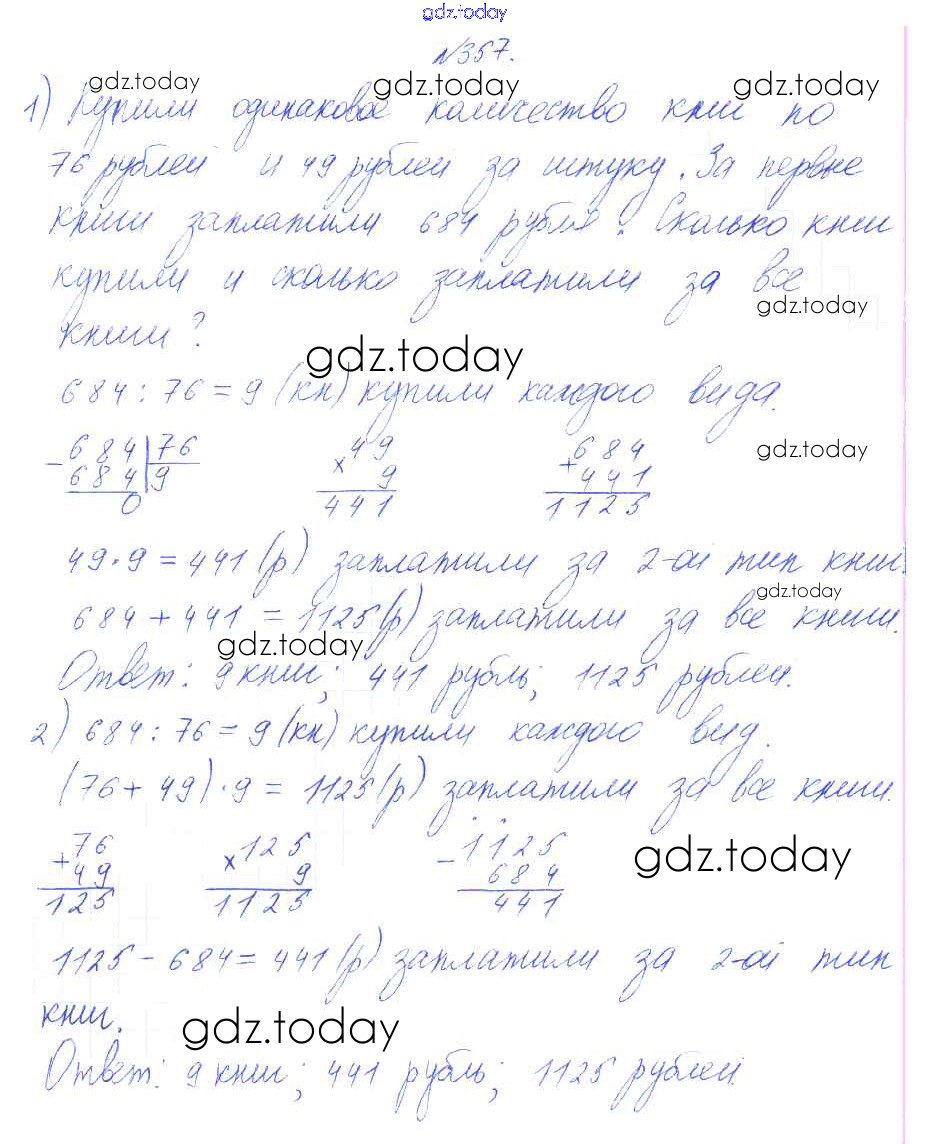 gdz.today
№357.
gdz.today gdz.today gdz.today
1) Купили одинаковое количество книг по
76 рублей и 49 рублей за штуку. За первые
книги заплатили 684 рубля. Сколько книг
купили и сколько заплатили за все
gdz.today
книги?
gdz.today
684 : 76 = 9 (кн) купили каждого вида.
- 684 | 76 × 49 + 684
gdz.today
684 | 9 9 441
0 441 1125
49 · 9 = 441 (р) заплатили за 2-ой тип книг.
gdz.today
684 + 441 = 1125 (р) заплатили за все книги.
gdz.today
Ответ: 9 книг; 441 рубль; 1125 рублей.
2) 684 : 76 = 9 (кн) купили каждого вид.
(76 + 49) · 9 = 1125 (р) заплатили за все книги.
+ 76 × 125 - 1125
gdz.today
49 9 684
125 1125 441
1125 - 684 = 441 (р) заплатили за 2-ой тип
книг.
gdz.today
Ответ: 9 книг; 441 рубль; 1125 рублей.